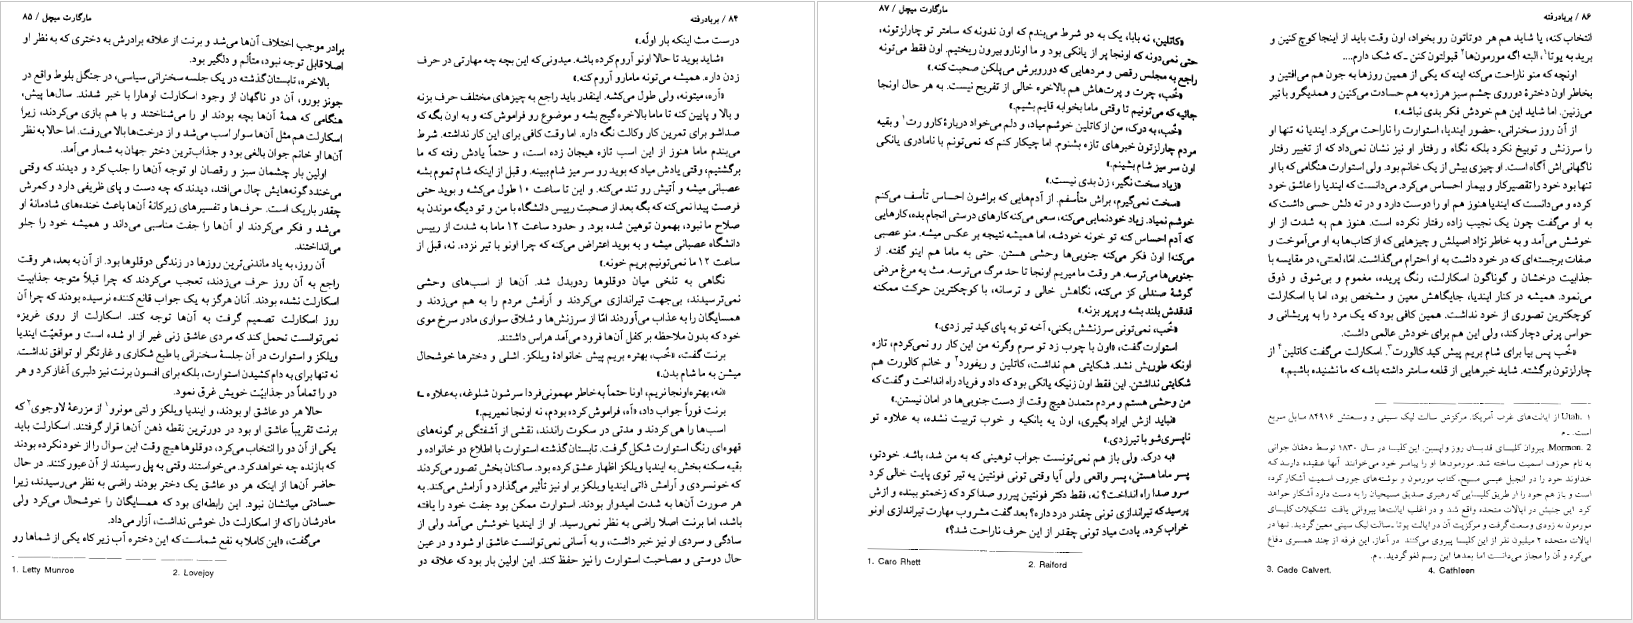 ۸۴ / بربادرفته
درست مث اینکه بار اولّه.»
«شاید بوید تا حالا اونو آروم کرده باشه. میدونی‌که این بچه چه مهارتی در حرف
زدن داره. همیشه می‌تونه مامارو آروم کنه.»
«آره، میتونه، ولی طول می‌کشه. اینقدر باید راجع به چیزهای مختلف حرف بزنه
و بالا و پایین کنه تا ماما بالاخره گیج بشه و موضوع رو فراموش کنه و به اون بگه که
صداشو برای تمرین کار وکالت نگه داره. اما وقت کافی برای این کار نداشته. شرط
می‌بندم ماما هنوز از این اسب تازه هیجان زده است، و حتماً یادش رفته که ما
برگشتیم، وقتی یادش میاد که بوید رو سر میز شام ببینه. و قبل از اینکه شام تموم بشه
عصبانی میشه و آتیش رو تند می‌کنه. و این تا ساعت ۱۰ طول می‌کشه و بوید حتی
فرصت پیدا نمی‌کنه که بگه بعد از صحبت رییس دانشگاه با من و تو دیگه موندن به
صلاح ما نبود، بهمون توهین شده بود. و حدود ساعت ۱۲ ماما به شدت از رییس
دانشگاه عصبانی میشه و به بوید اعتراض می‌کنه که چرا اونو با تیر نزده. نه، قبل از
ساعت ۱۲ ما نمی‌تونیم بریم خونه.»
نگاهی به تلخی میان دوقلوها ردوبدل شد. آن‌ها از اسب‌های وحشی
نمی‌ترسیدند، بی‌جهت تیراندازی می‌کردند و آرامش مردم را به هم می‌زدند و
همسایگان را به عذاب می‌آوردند امّا از سرزنش‌ها و شلاق سواری مادر سرخ موی
خود که بدون ملاحظه بر کفل آن‌ها فرود می‌آمد هراس داشتند.
برنت گفت، «خُب، بهتره بریم پیش خانوادهٔ ویلکز. اشلی و دخترها خوشحال
میشن به ما شام بدن.»
«نه، بهتره اونجا نریم، اونا حتماً به خاطر مهمونی فردا سرشون شلوغه، به‌علاوه ـ»
برنت فوراً جواب داد، «آه، فراموش کرده بودم، نه اونجا نمیریم.»
اسب‌ها را هی کردند و مدتی در سکوت راندند، نقشی از آشفتگی بر گونه‌های
قهوه‌ای رنگ استوارت شکل گرفت. تابستان گذشته استوارت با اطلاع دو خانواده و
بقیه سکنه بخش به ایندیا ویلکز اظهار عشق کرده بود. ساکنان بخش تصور می‌کردند
که خونسردی و آرامش ذاتی ایندیا ویلکز بر او نیز تأثیر می‌گذارد و آرامش می‌کند. به
هر صورت آن‌ها به شدت امیدوار بودند. استوارت ممکن بود جفت خود را یافته
باشد، اما برنت اصلا راضی به نظر نمی‌رسید. او از ایندیا خوشش می‌آمد ولی از
سادگی و سردی او نیز خبر داشت، و به آسانی نمی‌توانست عاشق او شود و در عین
حال دوستی و مصاحبت استوارت را نیز حفظ کند. این اولین بار بود که علاقه دو
مارگارت میچل / ۸۵
برادر موجب اختلاف آن‌ها می‌شد و برنت از علاقه برادرش به دختری که به نظر او
اصلا قابل توجه نبود، متألم و دلگیر بود.
بالاخره، تابستان گذشته در یک جلسه سخنرانی سیاسی، در جنگل بلوط واقع در
جونز بورو، آن دو ناگهان از وجود اسکارلت اوهارا با خبر شدند. سال‌ها پیش،
هنگامی که همهٔ آن‌ها بچه بودند او را می‌شناختند و با هم بازی می‌کردند، زیرا
اسکارلت هم مثل آن‌ها سوار اسب می‌شد و از درخت‌ها بالا می‌رفت. اما حالا به نظر
آن‌ها او خانم جوان بالغی بود و جذاب‌ترین دختر جهان به شمار می‌آمد.
اولین بار چشمان سبز و رقصان او توجه آن‌ها را جلب کرد و دیدند که وقتی
می‌خندد گونه‌هایش چال می‌افتد، دیدند که چه دست و پای ظریفی دارد و کمرش
چقدر باریک است. حرف‌ها و تفسیرهای زیرکانهٔ آن‌ها باعث خنده‌های شادمانهٔ او
می‌شد و فکر می‌کردند او آن‌ها را جفت مناسبی می‌داند و همیشه خود را جلو
می‌انداختند.
آن روز، به یاد ماندنی‌ترین روزها در زندگی دوقلوها بود. از آن به بعد، هر وقت
راجع به آن روز حرف می‌زدند، تعجب می‌کردند که چرا قبلاً متوجه جذابیت
اسکارلت نشده بودند. آنان هرگز به یک جواب قانع کننده نرسیده بودند که چرا آن
روز اسکارلت تصمیم گرفت به آن‌ها توجه کند. اسکارلت از روی غریزه
نمی‌توانست تحمل کند که مردی عاشق زنی غیر از او شده است و موقعیّت ایندیا
ویلکز و استوارت در آن جلسهٔ سخنرانی با طبع شکاری و غارتگر او توافق نداشت.
نه تنها برای به دام کشیدن استوارت، بلکه برای افسون برنت نیز دلبری آغاز کرد و هر
دو را تماماً در جذابیّت خویش غرق نمود.
حالا هر دو عاشق او بودند، و ایندیا ویلکز و لتی مونرو۱ از مزرعهٔ لاوجوی۲ که
برنت تقریباً عاشق او بود در دورترین نقطه ذهن آن‌ها قرار گرفتند. اسکارلت باید
یکی از آن دو را انتخاب می‌کرد، دوقلوها هیچ وقت این سوال را از خود نکرده بودند
که بازنده چه خواهد کرد. می‌خواستند وقتی به پل رسیدند از آن عبور کنند. در حال
حاضر آن‌ها از اینکه هر دو عاشق یک دختر بودند راضی به نظر می‌رسیدند، زیرا
حسادتی میانشان نبود. این رابطه‌ای بود که همسایگان را خوشحال می‌کرد ولی
مادرشان را که از اسکارلت دل خوشی نداشت، آزار می‌داد.
می‌گفت، «این کاملا به نفع شماست که این دختره آب زیر کاه یکی از شماها رو
1. Letty Munroe 2. Lovejoy
۸۶ / بربادرفته
انتخاب کنه، یا شاید هم هر دوتاتون رو بخواد، اون وقت باید از اینجا کوچ کنین و
برید به یوتا۱، البته اگه مورمون‌ها۲ قبولتون کنن ـ که شک دارم....
اونچه که منو ناراحت می‌کنه اینه که یکی از همین روزها به جون هم می‌افتین و
بخاطر اون دخترهٔ دوروی چشم سبز هرزه به هم حسادت می‌کنین و همدیگرو با تیر
می‌زنین. اما شاید این هم خودش فکر بدی نباشه.»
از آن روز سخنرانی، حضور ایندیا، استوارت را ناراحت می‌کرد. ایندیا نه تنها او
را سرزنش و توبیخ نکرد بلکه نگاه و رفتار او نیز نشان نمی‌داد که از تغییر رفتار
ناگهانی‌اش آگاه است. او چیزی بیش از یک خانم بود. ولی استوارت هنگامی‌که با او
تنها بود خود را تقصیرکار و بیمار احساس می‌کرد. می‌دانست که ایندیا را عاشق خود
کرده و می‌دانست که ایندیا هنوز هم او را دوست دارد و در ته دلش حسی داشت که
به او می‌گفت چون یک نجیب زاده رفتار نکرده است. هنوز هم به شدت از او
خوشش می‌آمد و به خاطر نژاد اصیلش و چیزهایی که از کتاب‌ها به او می‌آموخت و
صفات برجسته‌ای که در خود داشت به او احترام می‌گذاشت. امّا، لعنتی، در مقایسه با
جذابیت درخشان و گوناگون اسکارلت، رنگ پریده، مغموم و بی‌شوق و ذوق
می‌نمود. همیشه در کنار ایندیا، جایگاهش معین و مشخص بود، اما با اسکارلت
کوچکترین تصوری از خود نداشت. همین کافی بود که یک مرد را به پریشانی و
حواس پرتی دچار کند، ولی این هم برای خودش عالمی داشت.
«خُب پس بیا برای شام بریم پیش کید کالورت۳. اسکارلت می‌گفت کاتلین۴ از
چارلزتون برگشته. شاید خبرهایی از قلعه سامتر داشته باشه که ما نشنیده باشیم.»
1 .Utah از ایالت‌های غرب آمریکا. مرکزش سالت لیک سیتی و وسعتش ۸۴۹۱۶ مایل مربع
است. ـ م
2 .Mormon پیروان کلیسای قدیسان روز واپسین. این کلیسا در سال ۱۸۳۰ توسط دهقان جوانی
به نام جوزف اسمیت ساخته شد. مورمون‌ها او را پیامبر خود می‌خوانند. آنها عقیده دارند که
خداوند خود را در انجیل عیسی مسیح، کتاب مورمون و نوشته‌های جوزف اسمیت آشکار کرده،
است و باز هم خود را از طریق کلیسایی که رهبری صدیق مسیحیان را به دست دارد آشکار خواهد
کرد. این جنبش در ایالات متحده واقع شد و در اغلب ایالت‌ها پیروانی یافت. تشکیلات کلیسای
مورمون به زودی وسعت گرفت و مرکزیت آن در ایالت یوتا ـ سالت لیک سیتی معین گردید. تنها در
ایالات متحده ۲ میلیون نفر از این کلیسا پیروی می‌کنند. در آغاز، این فرقه از چند همسری دفاع
می‌کرد و آن را مجاز می‌دانست اما بعدها این رسم لغو گردید. ـ م.
3. Cade Calvert. 4. Cathleen
مارگارت میچل / ۸۷
«کاتلین، نه بابا، یک به دو شرط می‌بندم که اون ندونه که سامتر تو چارلزتونه،
حتی نمی‌دونه که اونجا پر از یانکی بود و ما اونارو بیرون ریختیم. اون فقط می‌تونه
راجع به مجلس رقص و مردهایی که دوروبرش می‌پلکن صحبت کنه.»
«خُب، چرت و پرت‌هاش هم بالاخره خالی از تفریح نیست. به هر حال اونجا
جائیه که می‌تونیم تا وقتی ماما بخوابه قایم بشیم.»
«خُب، به درک، من از کاتلین خوشم میاد، و دلم می‌خواد دربارهٔ کارو رت۱ و بقیه
مردم چارلزتون خبرهای تازه بشنوم. اما چیکار کنم که نمی‌تونم با نامادری یانکی
اون سر میز شام بشینم.»
«زیاد سخت نگیر، زن بدی نیست.»
«سخت نمی‌گیرم، براش متأسفم. از آدم‌هایی که براشون احساس تأسف می‌کنم
خوشم نمیاد. زیاد خودنمایی می‌کنه، سعی می‌کنه کارهای درستی انجام بده، کارهایی
که آدم احساس کنه تو خونه خودشه، اما همیشه نتیجه بر عکس میشه. منو عصبی
می‌کنه! اون فکر می‌کنه جنوبی‌ها وحشی هستن. حتی به ماما هم اینو گفته. از
جنوبی‌ها می‌ترسه. هر وقت ما میریم اونجا تا حد مرگ می‌ترسه. مث یه مرغ مردنی
گوشهٔ صندلی کز می‌کنه، نگاهش خالی و ترسانه، با کوچکترین حرکت ممکنه
قدقدش بلند بشه و پرپر بزنه.»
«خُب، نمی‌تونی سرزنشش بکنی، آخه تو به پای کید تیر زدی.»
استوارت گفت، «اون با چوب زد تو سرم وگرنه من این کار رو نمی‌کردم، تازه
اونکه طوریش نشد. شکایتی هم نداشت، کاتلین و ریفورد۲ و خانم کالورت هم
شکایتی نداشتن. این فقط اون زنیکه یانکی بود که داد و فریاد راه انداخت و گفت که
من وحشی هستم و مردم متمدن هیچ وقت از دست جنوبی‌ها در امان نیستن.»
«نباید ازش ایراد بگیری، اون یه یانکیه و خوب تربیت نشده، به علاوه تو
ناپسری‌شو با تیر زدی.»
«به درک. ولی باز هم نمی‌تونست جواب توهینی که به من شد، باشه. خودتو،
پسر ماما هستی، پسر واقعی ولی آیا وقتی تونی فونتین یه تیر توی پایت خالی کرد
سرو صدا راه انداخت؟ نه، فقط دکتر فونتین پیررو صدا کرد که زخمتو ببنده و ازش
پرسید که تیراندازی تونی چقدر درد داره؟ بعد گفت مشروب مهارت تیراندازی اونو
خراب کرده. یادت میاد تونی چقدر از این حرف ناراحت شد؟»
1. Caro Rhett 2. Raiford